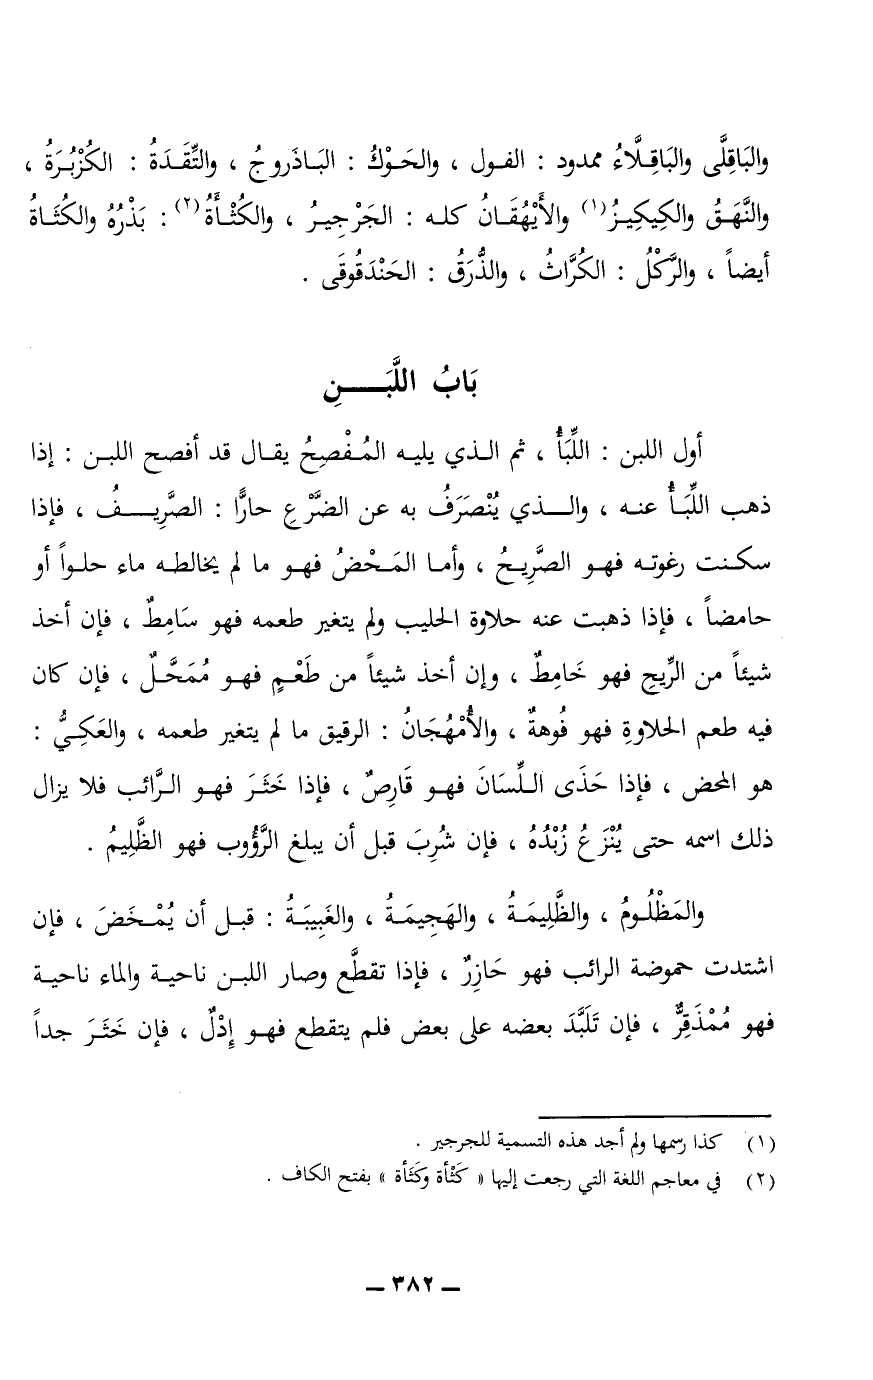 والبَاقِلَّى والبَاقِلَّاءُ ممدود : الفول ، والحَوْكُ : البَاذَروجُ ، والتِّقَدَةُ : الكُزْبُرَةُ ،
والنَّهَقُ والكِيكِيزُ(١) والأَيْهُقَانُ كله : الجَرْجِيرُ ، والكُثْأَةُ(٢) : بَذْرُهُ والكُثَاةُ
أيضاً ، والرَّكْلُ : الكُرَّاثُ ، والذُّرَقُ : الحَنْدَقُوقَى .
بَابُ اللَّبَنِ
أول اللبن : اللِّبَأُ ، ثم الذي يليه المُفْصِحُ يقال قد أفصح اللبن : إذا
ذهب اللِّبَأُ عنه ، والذي يُنْصَرَفُ به عن الضَّرْعِ حارًّا : الصَّرِيفُ ، فإذا
سكنت رغوته فهو الصَّرِيحُ ، وأما المَحْضُ فهو ما لم يخالطه ماء حلواً أو
حامضاً ، فإذا ذهبت عنه حلاوة الحليب ولم يتغير طعمه فهو سَامِطٌ ، فإن أخذ
شيئاً من الرِّيحِ فهو خَامِطٌ ، وإن أخذ شيئاً من طَعْمٍ فهو مُمَحَّلٌ ، فإن كان
فيه طعم الحلاوةِ فهو فُوهةٌ ، والأُمْهُجَانُ : الرقيق ما لم يتغير طعمه ، والعَكِيُّ :
هو المحض ، فإذا حَذَى اللِّسَانَ فهو قَارِصٌ ، فإذا خَثَرَ فهو الرَّائب فلا يزال
ذلك اسمه حتى يُنْزَعُ زُبْدُهُ ، فإن شُرِبَ قبل أن يبلغ الرَّؤُوب فهو الظَّلِيمُ .
والمَظْلُومُ ، والظَّلِيمَةُ ، والهَجِيمَةُ ، والغَبِيبَةُ : قبل أن يُمْخَضَ ، فإن
اشتدت حموضة الرائب فهو حَازِرٌ ، فإذا تقطَّع وصار اللبن ناحية والماء ناحية
فهو مُمْذَقِرٌّ ، فإن تَلَبَّدَ بعضه على بعض فلم يتقطع فهو إِدْلٌ ، فإن خَثَرَ جداً
(١) كذا رسمها ولم أجد هذه التسمية للجرجير .
(٢) في معاجم اللغة التي رجعت إليها « كَثْأة وكَثَأة » بفتح الكاف .
ـ ٣٨٢ ـ